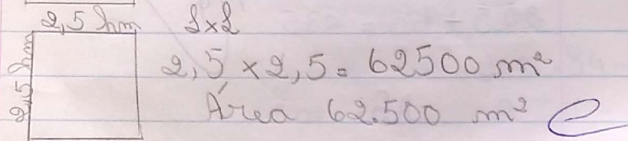 2,5 hm l×l
2,5 hm
2,5 × 2,5 = 62500 m²
Área 62.500 m²